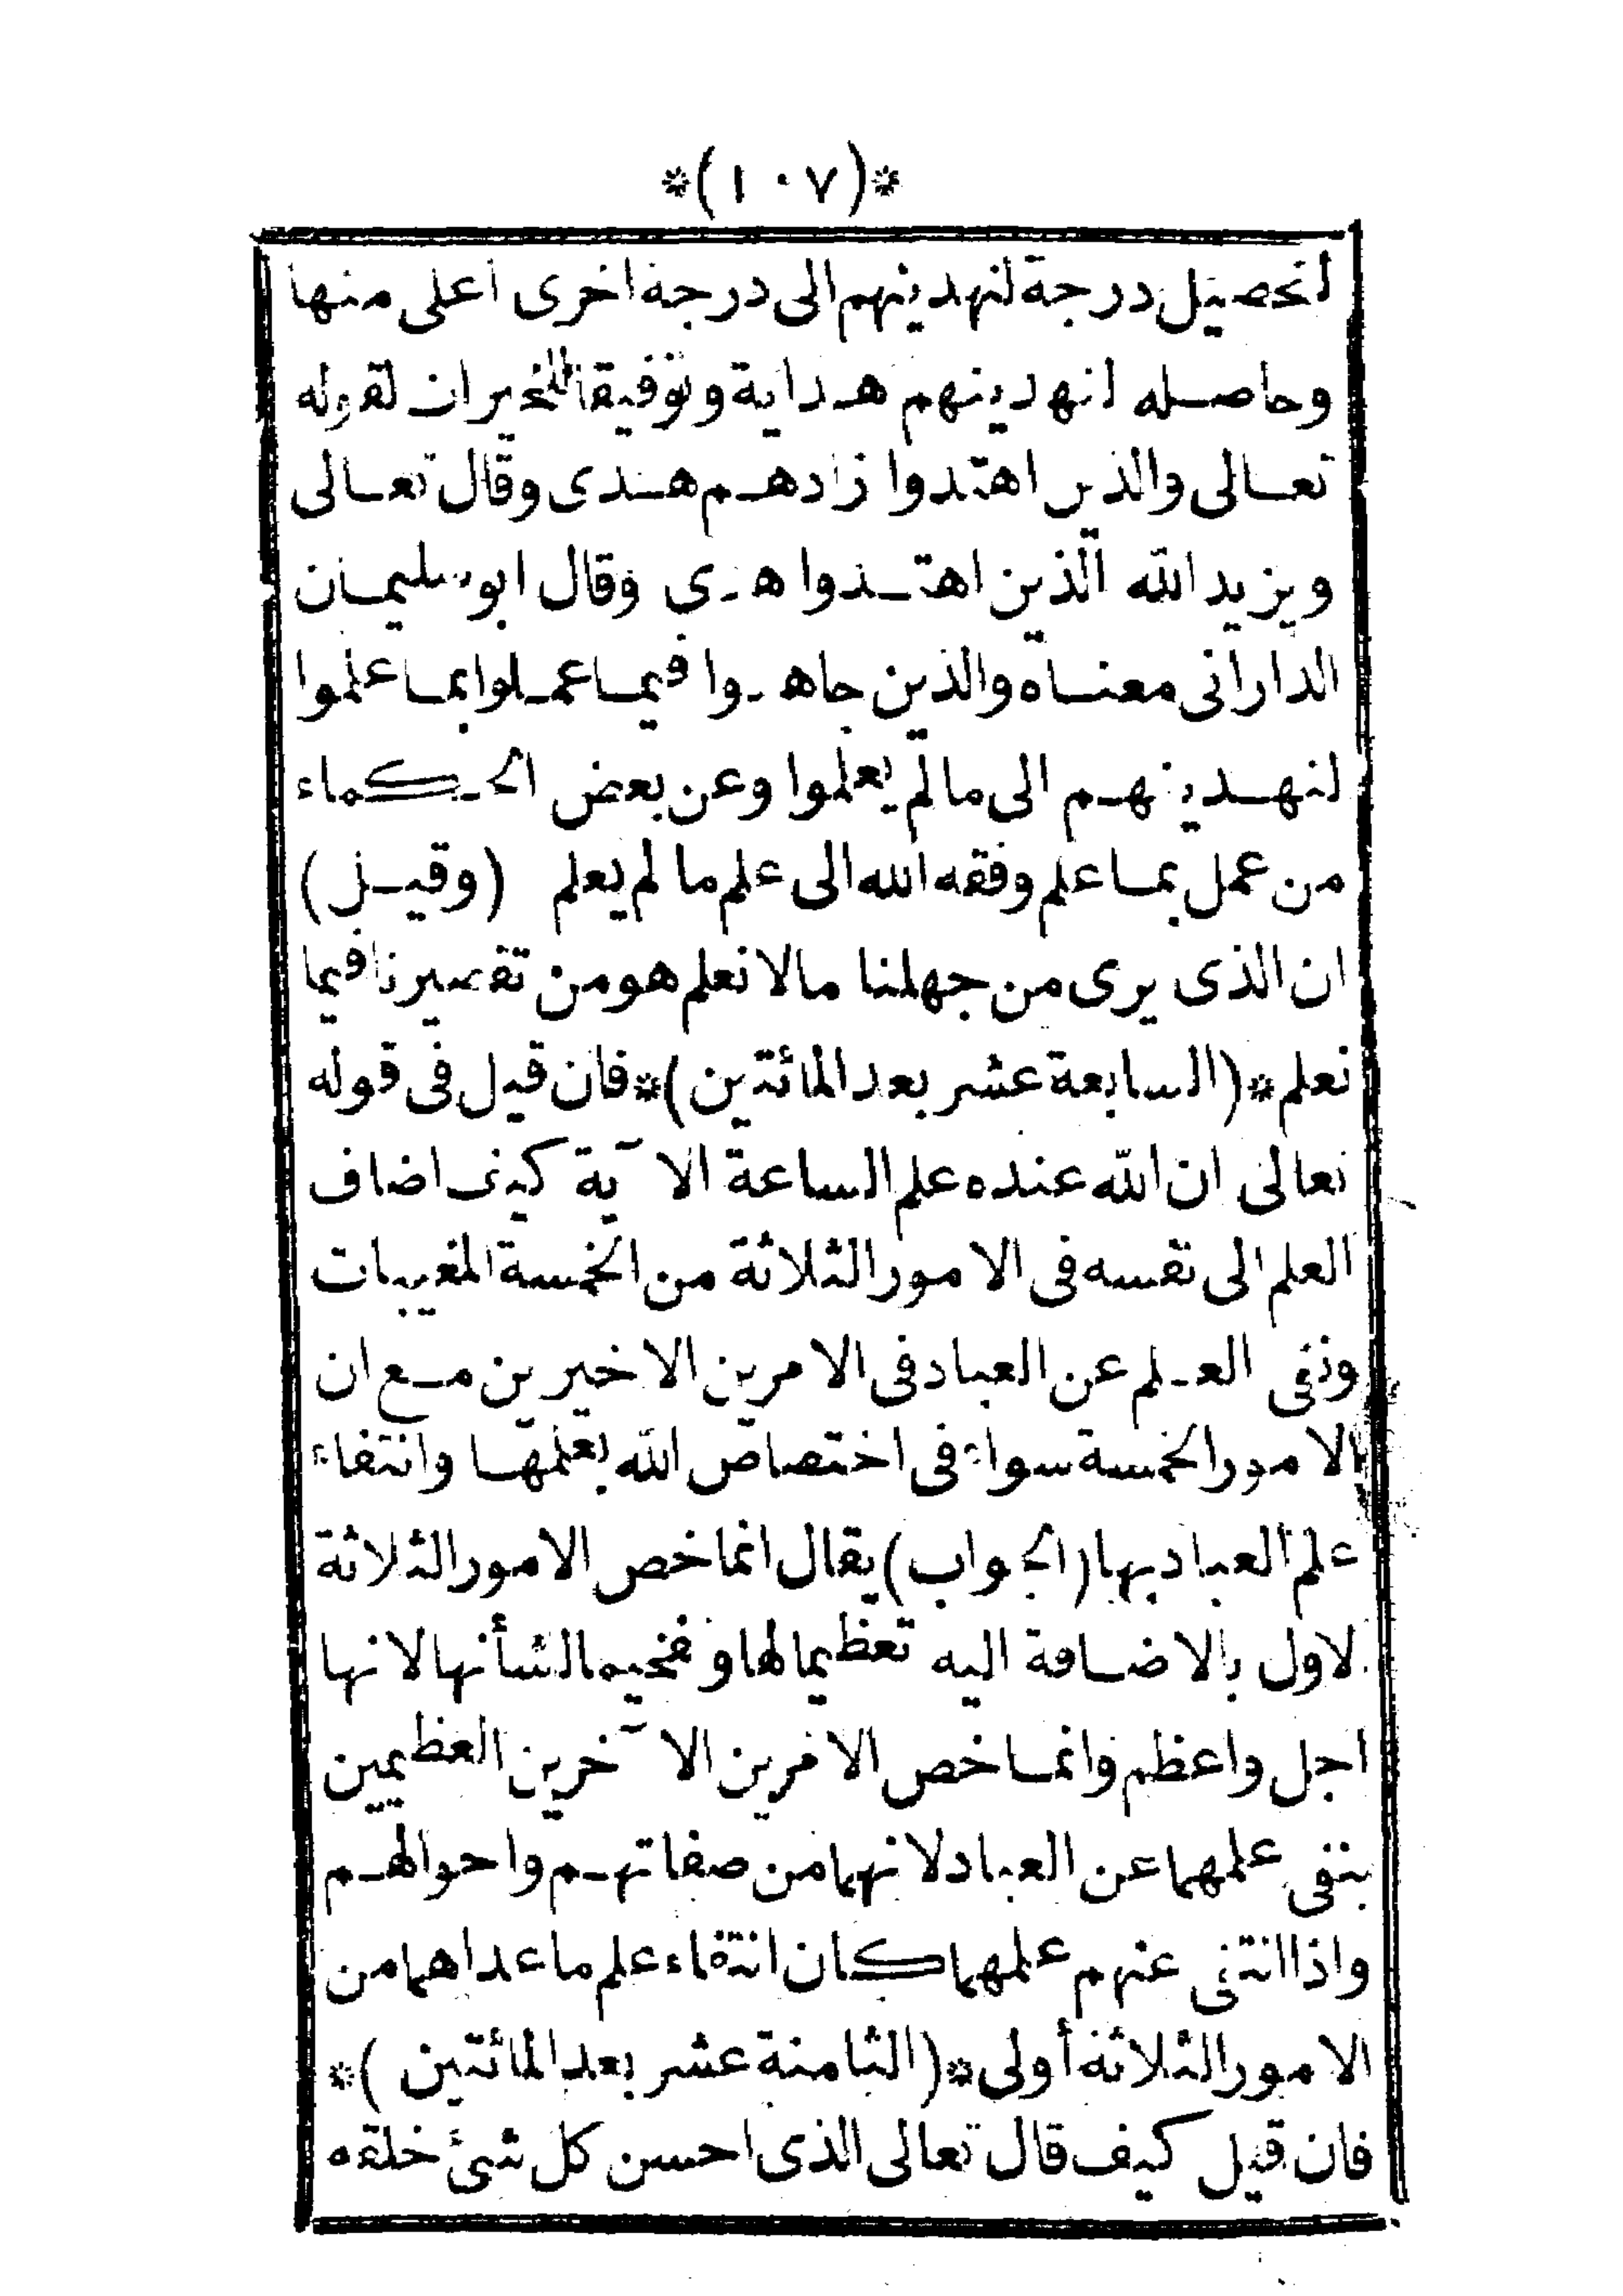 *(١٠٧)*
لتحصيل درجة لنهدينهم الى درجة اخرى اعلى منها
وحاصله لنهدينهم هداية وتوفيقا للخيرات لقوله
تعالى والذين اهتدوا زادهم هدى وقال تعالى
ويزيد الله الذين اهتدوا هدى وقال ابو سليمان
الدارانى معناه والذين جاهدوا فيما عملوا بما علموا
لنهدينهم الى مالم يعلموا وعن بعض الحكماء
من عمل بما علم وفقه الله الى علم ما لم يعلم (وقيل)
ان الذى يرى من جهلنا مالا نعلم هو من تقصيرنا فيما
نعلم *(السابعة عشر بعد المائتين)* فان قيل فى قوله
تعالى ان الله عنده علم الساعة الآية كيف اضاف
العلم الى نفسه فى الامور الثلاثة من الخمسة المغيبات
ونفى العلم عن العباد فى الامرين الاخيرين مع ان
الامور الخمسة سواء فى اختصاص الله بعلمها وانتفاء
علم العباد بها (الجواب) يقال انما خص الامور الثلاثة
الاول بالاضافة اليه تعظيما لها وتفخيما لشأنها لانها
اجل واعظم وانما خص الامرين الآخرين العظيمين
بنفى علمهما عن العباد لانهما من صفاتهم واحوالهم
واذا انتفى عنهم علمهما كان انتفاء علم ما عداهما من
الامور الثلاثة أولى *(الثامنة عشر بعد المائتين)*
فان قيل كيف قال تعالى الذى احسن كل شئ خلقه